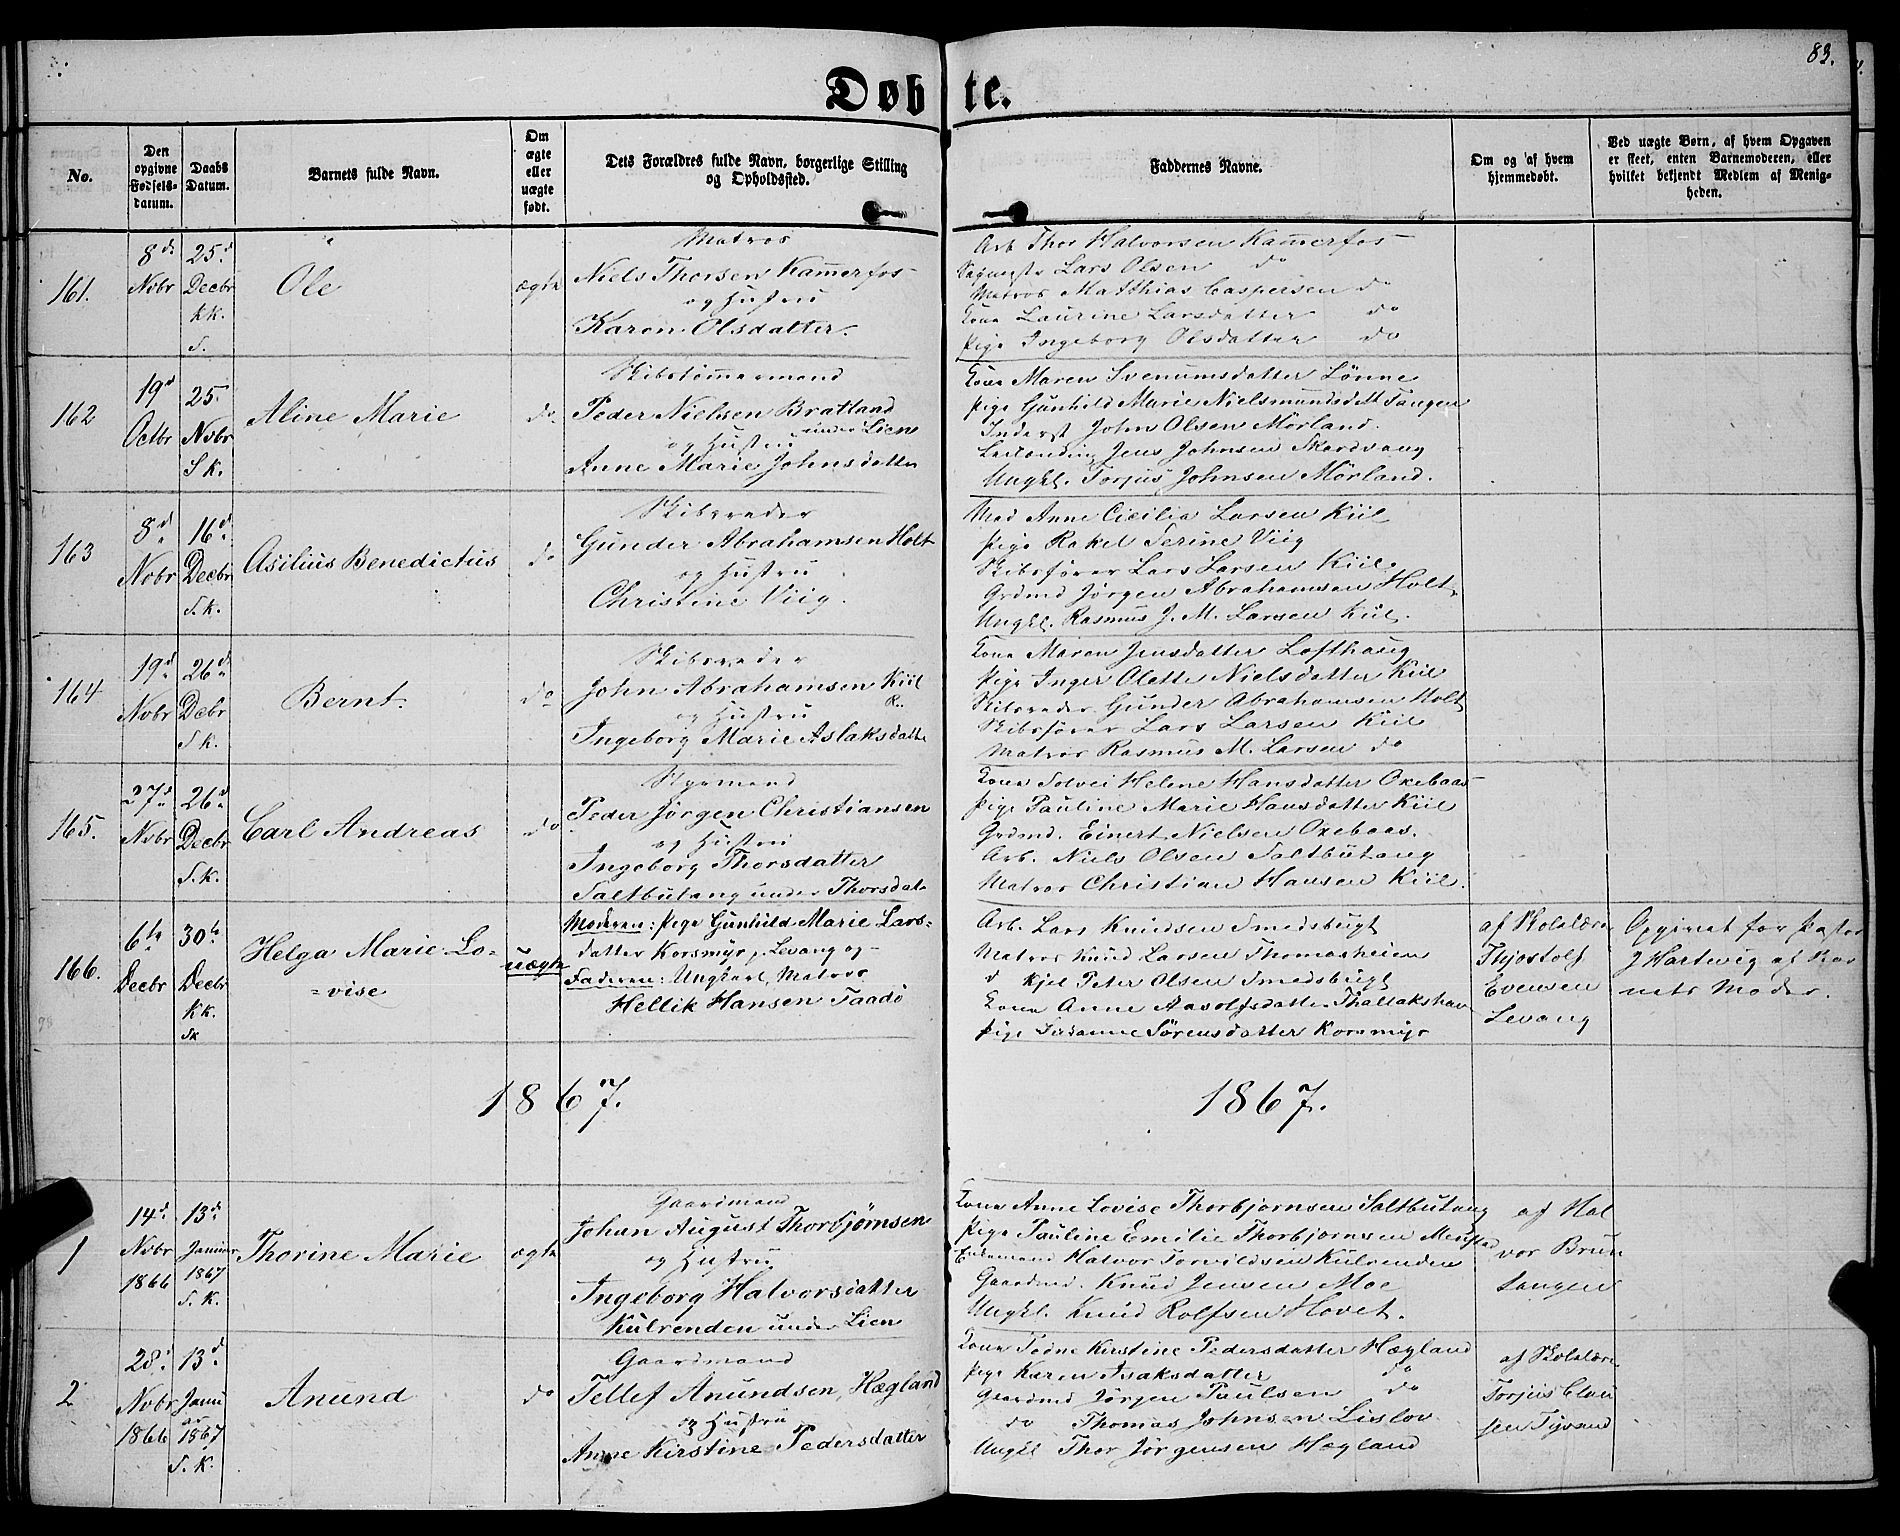 83.
Døbte.
No.
Den opgivne Fødsels-datum.
Daabs Datum.
Barnets fulde Navn.
Om ægte eller uægte født.
Dets Forældres fulde Navn, borgerlige Stilling og Opholdssted.
Faddernes Navne.
Om og af hvem hjemmedøbt.
Ved uægte Børn, af hvem Opgaven er skeet, enten Barnemoderen, eller hvilket bekjendt Medlem af Menigheden.
161.
8d Nvbr
25d Decbr KK. S.
Ole
ægte
Matros
Niels Thorsen Kammerfos
og Hustru
Karen Olsdatter.
Arb Thor Halvorsen Kammerfos
Lars Olsen do
Matros Matthias Caspersen do
Kone Laurine Larsdatter do
Pige Ingeborg Olsdatter do
162
19d Octbr
25. Nvbr S K.
Aline Marie
do.
Skibstømmermand
Peder Nielsen Bratland
under Lien
og Hustru
Anne Marie Johnsdatter
Kone Maren Svenumsdatter Lønne
Pige Gunhild Marie Nielsmundsdatt Tangen
Inderst John Olsen Mørland.
Jens Johnsen Skardvang
Ungkl. Torjus Johnsen Mørland.
163
8d Nobr
16d Decbr S. K.
Asilius Benedictus
do
Skibsreder
Gunder Abrahamsen Holt
og Hustru
Christine Viig.
Mad Anne Cicilia Larsen Kiil
Pige Rakel Serine Viig
Skibsfører Lars Larsen Kiil
Grdmd Jørgen Abrahamsen Holt
Ungkl. Rasmus J. M. Larsen Kiil.
164
19d Nobr
26d Debr S K.
Bernt.
do
Skibsreder
John Abrahamsen Kiil
og Hustru
Ingeborg Marie Aslaksdatte
Kone Maren Jensdatter Lofthaug
Pige Inger Olette Nielsdatter Kiil
Skibsreder Gunder Abrahamsen Holt
Skibsfører Lars Larsen Kiil
Matros Rasmus M. Larsen do
165.
27d Nvbr
26d Decbr S. K.
Carl Andreas
do
Styrmand
Peder Jørgen Christiansen
og Hustru
Ingeborg Thorsdatter
Saltbutang under Thorsdal
Kone Solvei Helene Hansdatter Oxebaas
Pige Pauline Marie Hansdatter Kiil
Grdmd. Einert Nielsen Oxebaas.
Arb. Niels Olsen Saltbutang
Matros Christian Hansen Kiil.
166.
6te Decbr
30te Decbr KK. SK
Helga Marie Lo-
=vise
uægte
Moderen: Pige Gunhild Marie Lars-
datter Korsmyr p. Levang og
Faderen: Ungkarl, Matros
Hellik Hansen Taadø
Arb. Lars Knudsen Smedsbugt
Matros Knud Larsen Thomasheien
d Kjel Peter Olsen Smedsbugt
Kone Anne Aasolfsdatter Thallakshavn
Pige Susanne Sørensdatter Korsmyr
af Skolelærer
Thjostolf
Evensen
Levang
Opgivet for Pastor
J Hartwig af Bar
nets Moder.
1867.
1867.
1
14d Nvbr 1866
13d Januar 1867 S. K.
Thorine Marie
ægte
Gaardmand
Johan August Thorbjørnsen
og Hustru
Ingeborg Halvorsdatter
Kulrenden under Lien
Kone Anne Lovise Thorbjørnsen Saltbutang
Pige Pauline Emilie Thorbjørnsen Menstad
Halvor Torvildsen Kulrenden
Gaardmd. Knud Jensen Moe
Ungkl. Knud Rolfsen Hovet.
af Hal
vor Brun
tangen
2
28d Nobr 1866
13d Janu ar 1867 S. K.
Anund
do
Gaardmand
Tellef Anundsen, Hægland
og Hustru
Anne Kirstine Pedersdatter
Kone Todne Kirstine Pedersdatter Hægland
Pige Karen Isaksdatter do
Gaardmd Jørgen Paulsen do
do Thomas Johnsen Lislov
Ungkl Thor Jørgensen Hægland
af Skolelærer
Torjus Clau
sen Tyvand